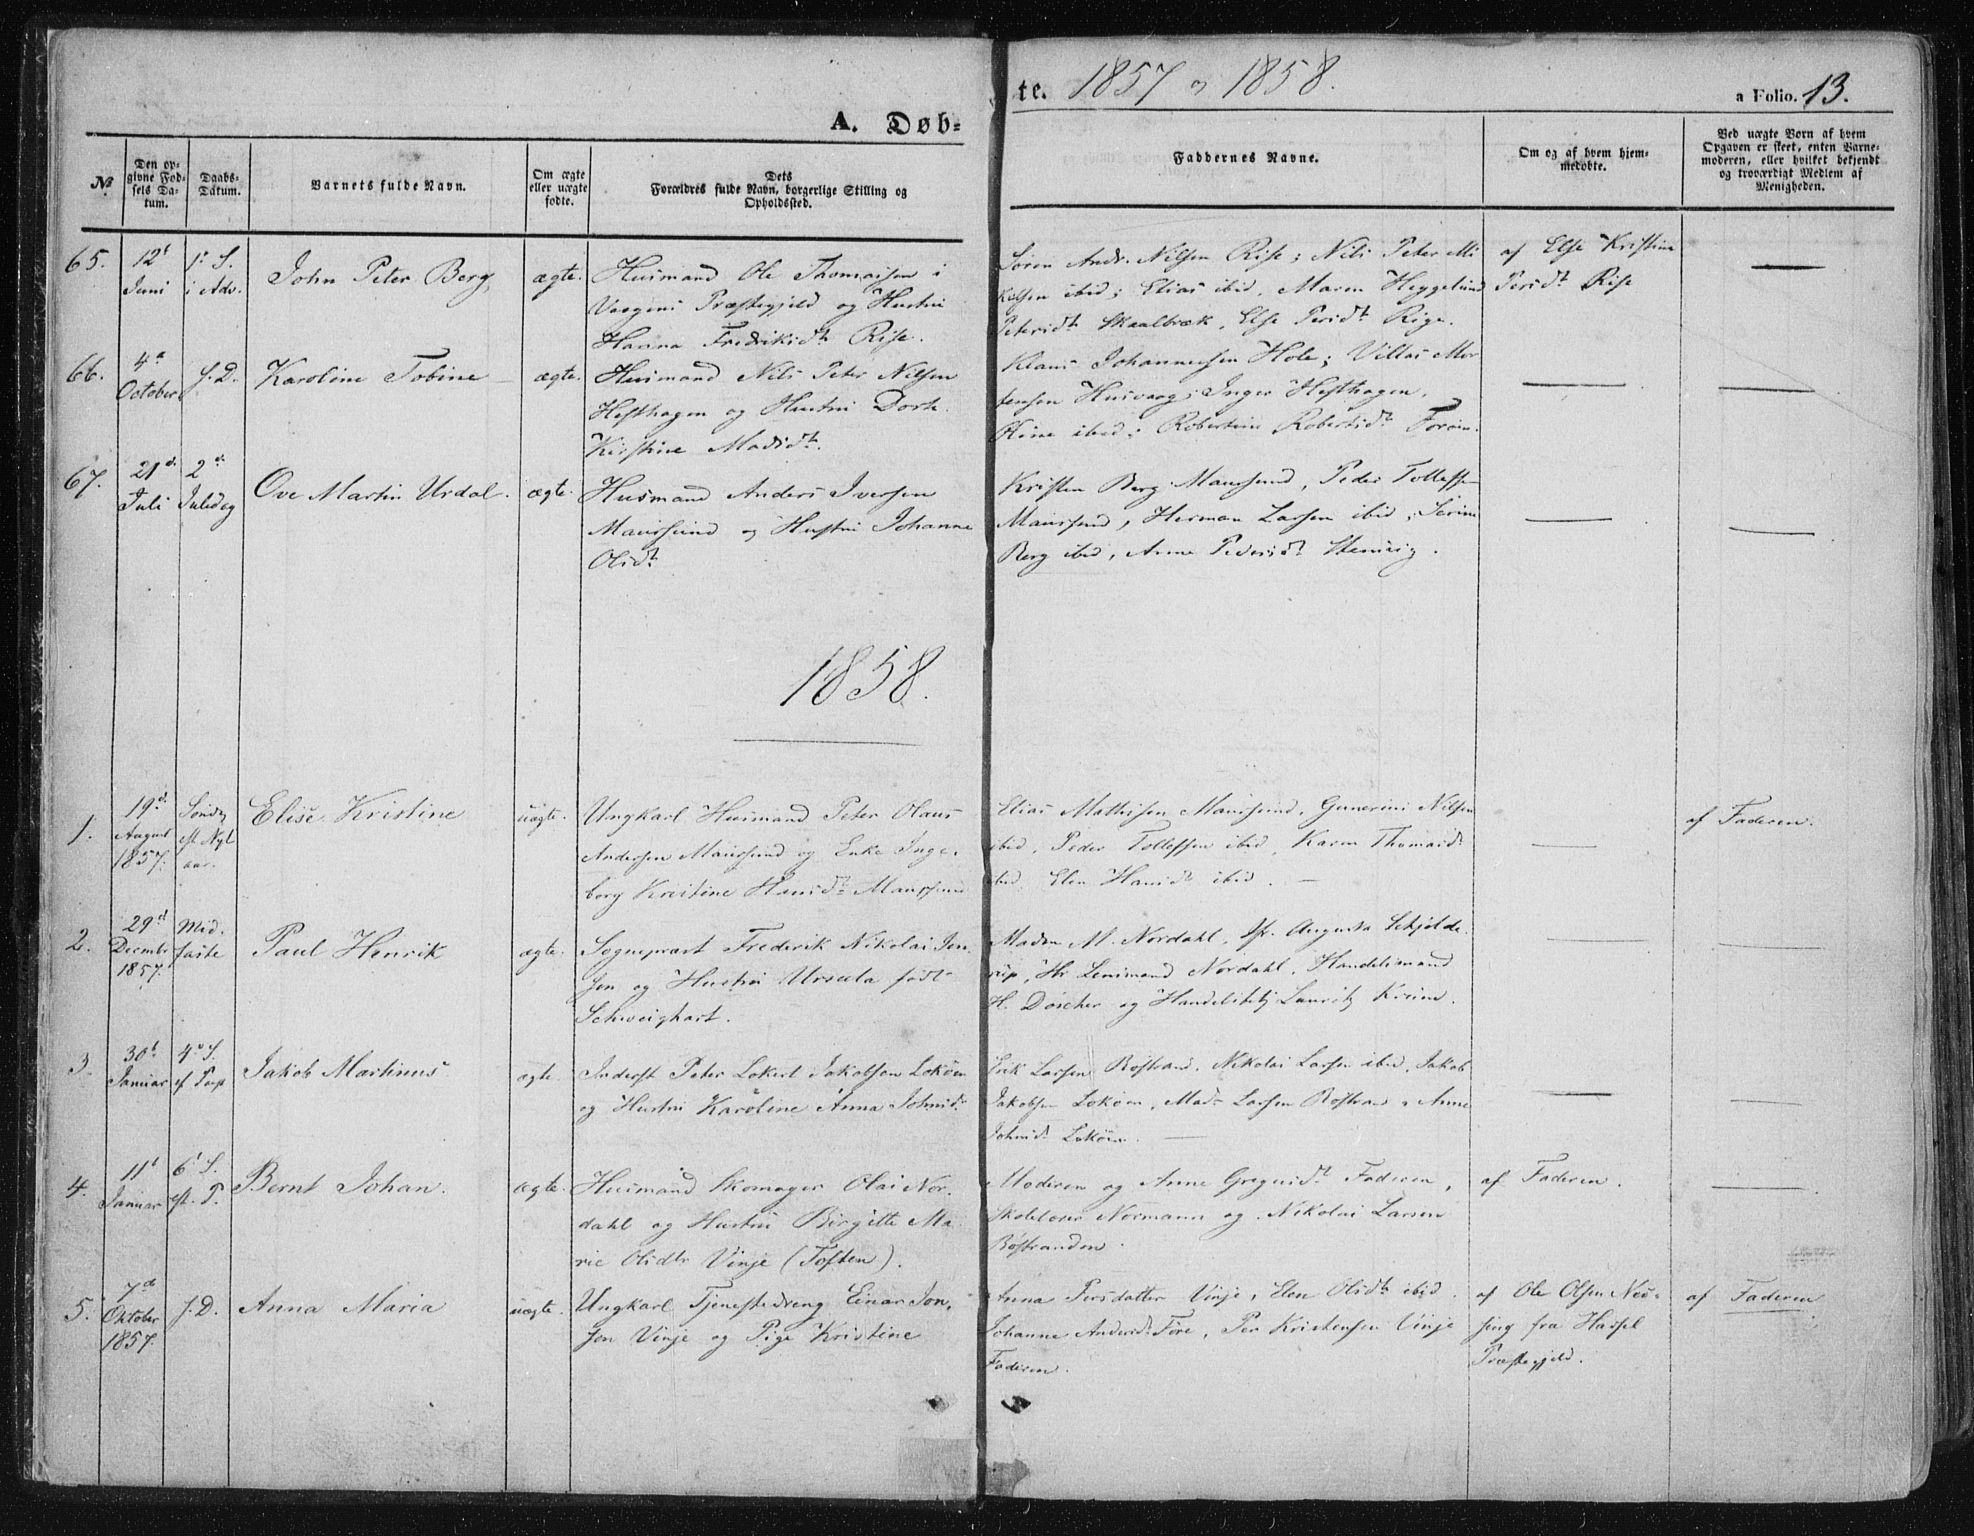 1857 o 1858.
A. Døb=
te.
a Folio. 13.
№
Den op-
givne Fød-
sels Da-
tum.
Daabs-
Datum.
Barnets fulde Navn.
Om ægte
eller uægte
fødte.
Dets
Forældres fulde Navn, borgerlige Stilling og
Opholdssted.
Faddernes Navne.
Om og af hvem hjem-
medøbte.
Ved uægte Børn af hvem
Opgaven er skeet, enten Barne-
moderen, eller hvilket bekjendt
og troværdigt Medlem af
Menigheden.
65.
12t
Juni
1s S.
i Adv.
John Peter Berg
ægte.
Husmand Ole Thomassen i
Vaagens Præstegjeld og Hustru
Hanna Fredriksdtr Rise.
Søren Andr. Nilsen Rise; Nils Peter Mi
kelsen ibid; Elias ibid, Maren Heggelund
Petersdtr Skaalbræk, Else Persdtr Rise.
af Else Kristine
Persdtr Rise
66.
4de
October
J.D.
Karoline Tobine
ægte.
Husmand Nils Peter Nilsen
Hesthagen og Hustru Dorte
Kirstine Madsdtr.
Klaus Johannessen Hole; Villas Mor
tensen Husvaag; Inger Hesthagen,
Oline ibid; Robertine Robertsdtr
67.
21d
Juli
2d
Juledag
Ove Martin Urdal.
ægte.
Husmand Anders Iversen
Maursund og Hustru Johanne
Olsdtr
Kristen Berg Maursund, Peder Tollefsen
Maursund, Herman Larsen ibid; Serine
Berg ibid, Anne Pedersdtr
1858.
1.
19d
August
1857.
Søndag
ef. Nyt
aar.
Elise Kristine
uægte.
Ungkarl Husmand Peter Olaus
Andersen Maursund og Enke Inge-
borg Kristine Hansdtr Maursund
Elias Mathisen Maursund, Gunerius Nilsen
ibid, Peder Tollefsen ibid, Karen Thomasdtr
ibid, Elen Hansdtr ibid.
af Faderen.
2.
29d
Decembr
1857.
Mid-
faste
Paul Henrik
ægte.
Sognepræst Frederik Nikolai Jen-
sen og Hustru Ursula født
Schweighart.
Madm M. Nordahl, Jfr. Augusta Schjelde-
rup, Hr Lensmand Nordahl, Handelsmand
H. Dorcher og Handelsbetj Lauritz
3.
30t
Januar
4de S.
ef Paas
Jakob Martinus
ægte.
Inderst Peter Lokert Jakobsen Lokøen
og Hustru Karoline Anna Johnsdtr
Erik Larsen Bøstrand, Nikolai Larsen ibid, Jakob
Jakobsen Lokøen, Mads Larsen Bøstrand o Anne
Johnsdtr Lokøen.
4.
11t
Januar
6t S.
ef. P.
Bernt Johan.
ægte.
Husmand Skomager Olai Nor-
dahl og Hustru Birgitte Ma-
rie Olsdtr Vinje (Toften).
Moderen og Anne Gregersdtr Faderen,
Skolelærer Normann og Nikolai Larsen
Bøstranden.
af Faderen.
5.
7d
Oktober
1857.
J.D.
Anna Maria
uægte.
Ungkarl Tjenestedreng Einar Jon-
sen Vinje og Pige Kristine
Anna Persdatter Vinje, Elen Olsdtr ibid.
Johanne Andersdtr Føre, Per Kristensen Vinje
Faderen.
af Ole Olsen
fra Hassel
Præstegjeld.
af Faderen